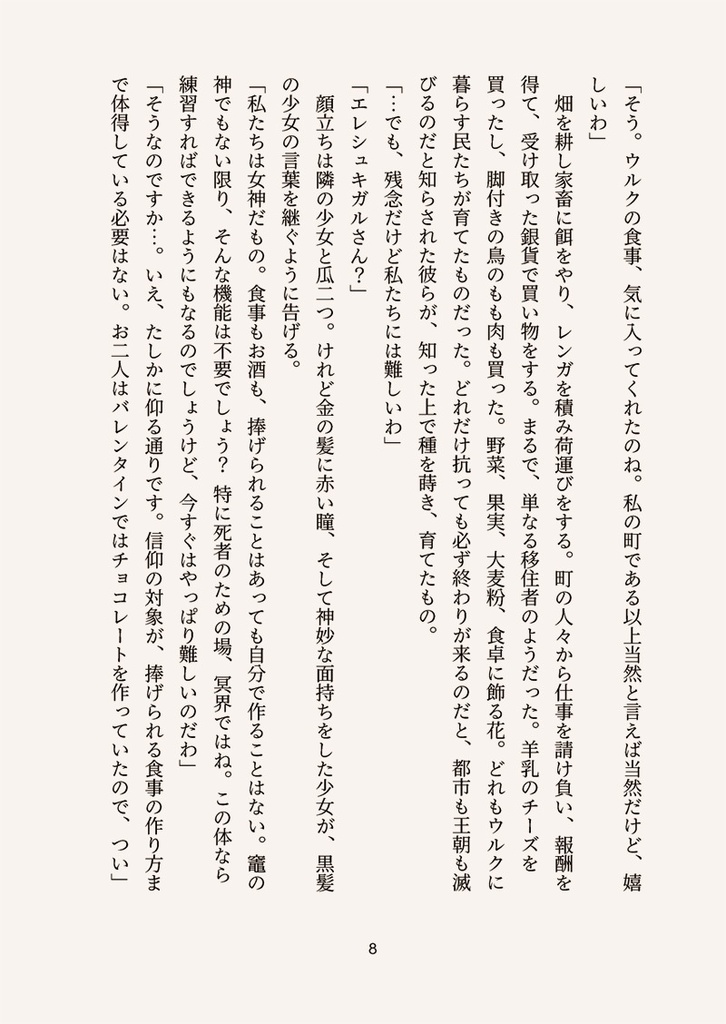 「そう。ウルクの食事、気に入ってくれたのね。私の町である以上当然と言えば当然だけど、嬉
しいわ」
　畑を耕し家畜に餌をやり、レンガを積み荷運びをする。町の人々から仕事を請け負い、報酬を
得て、受け取った銀貨で買い物をする。まるで、単なる移住者のようだった。羊乳のチーズを
買ったし、脚付きの鳥のもも肉も買った。野菜、果実、大麦粉、食卓に飾る花。どれもウルクに
暮らす民たちが育てたものだった。どれだけ抗っても必ず終わりが来るのだと、都市も王朝も滅
びるのだと知らされた彼らが、知った上で種を蒔き、育てたもの。
「…でも、残念だけど私たちには難しいわ」
「エレシュキガルさん？」
　顔立ちは隣の少女と瓜二つ。けれど金の髪に赤い瞳、そして神妙な面持ちをした少女が、黒髪
の少女の言葉を継ぐように告げる。
「私たちは女神だもの。食事もお酒も、捧げられることはあっても自分で作ることはない。竈の
神でもない限り、そんな機能は不要でしょう？ 特に死者のための場、冥界ではね。この体なら
練習すればできるようにもなるのでしょうけど、今すぐはやっぱり難しいのだわ」
「そうなのですか…。いえ、たしかに仰る通りです。信仰の対象が、捧げられる食事の作り方ま
で体得している必要はない。お二人はバレンタインではチョコレートを作っていたので、つい」
8